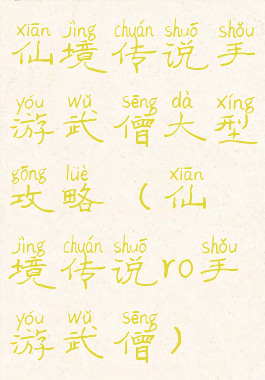 xiān jìng chuán shuō shǒu
仙境传说手
yóu wǔ sēng dà xíng
游武僧大型
gōng lüè xiān
攻略（仙
jìng chuán shuō shǒu
境传说ro手
yóu wǔ sēng
游武僧）